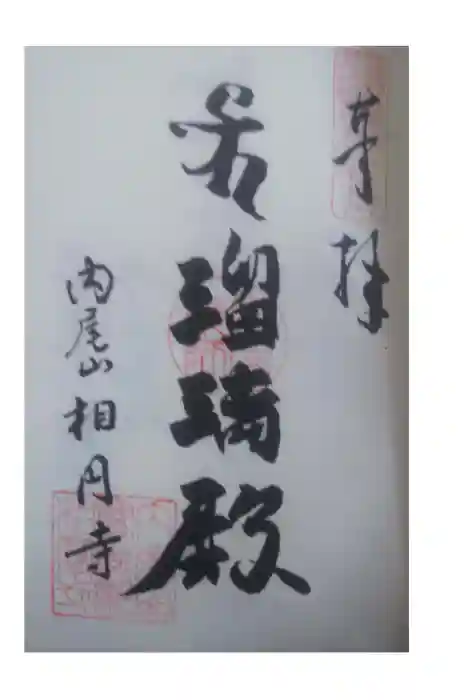 奉拝
瑠璃殿
内尾山相円寺